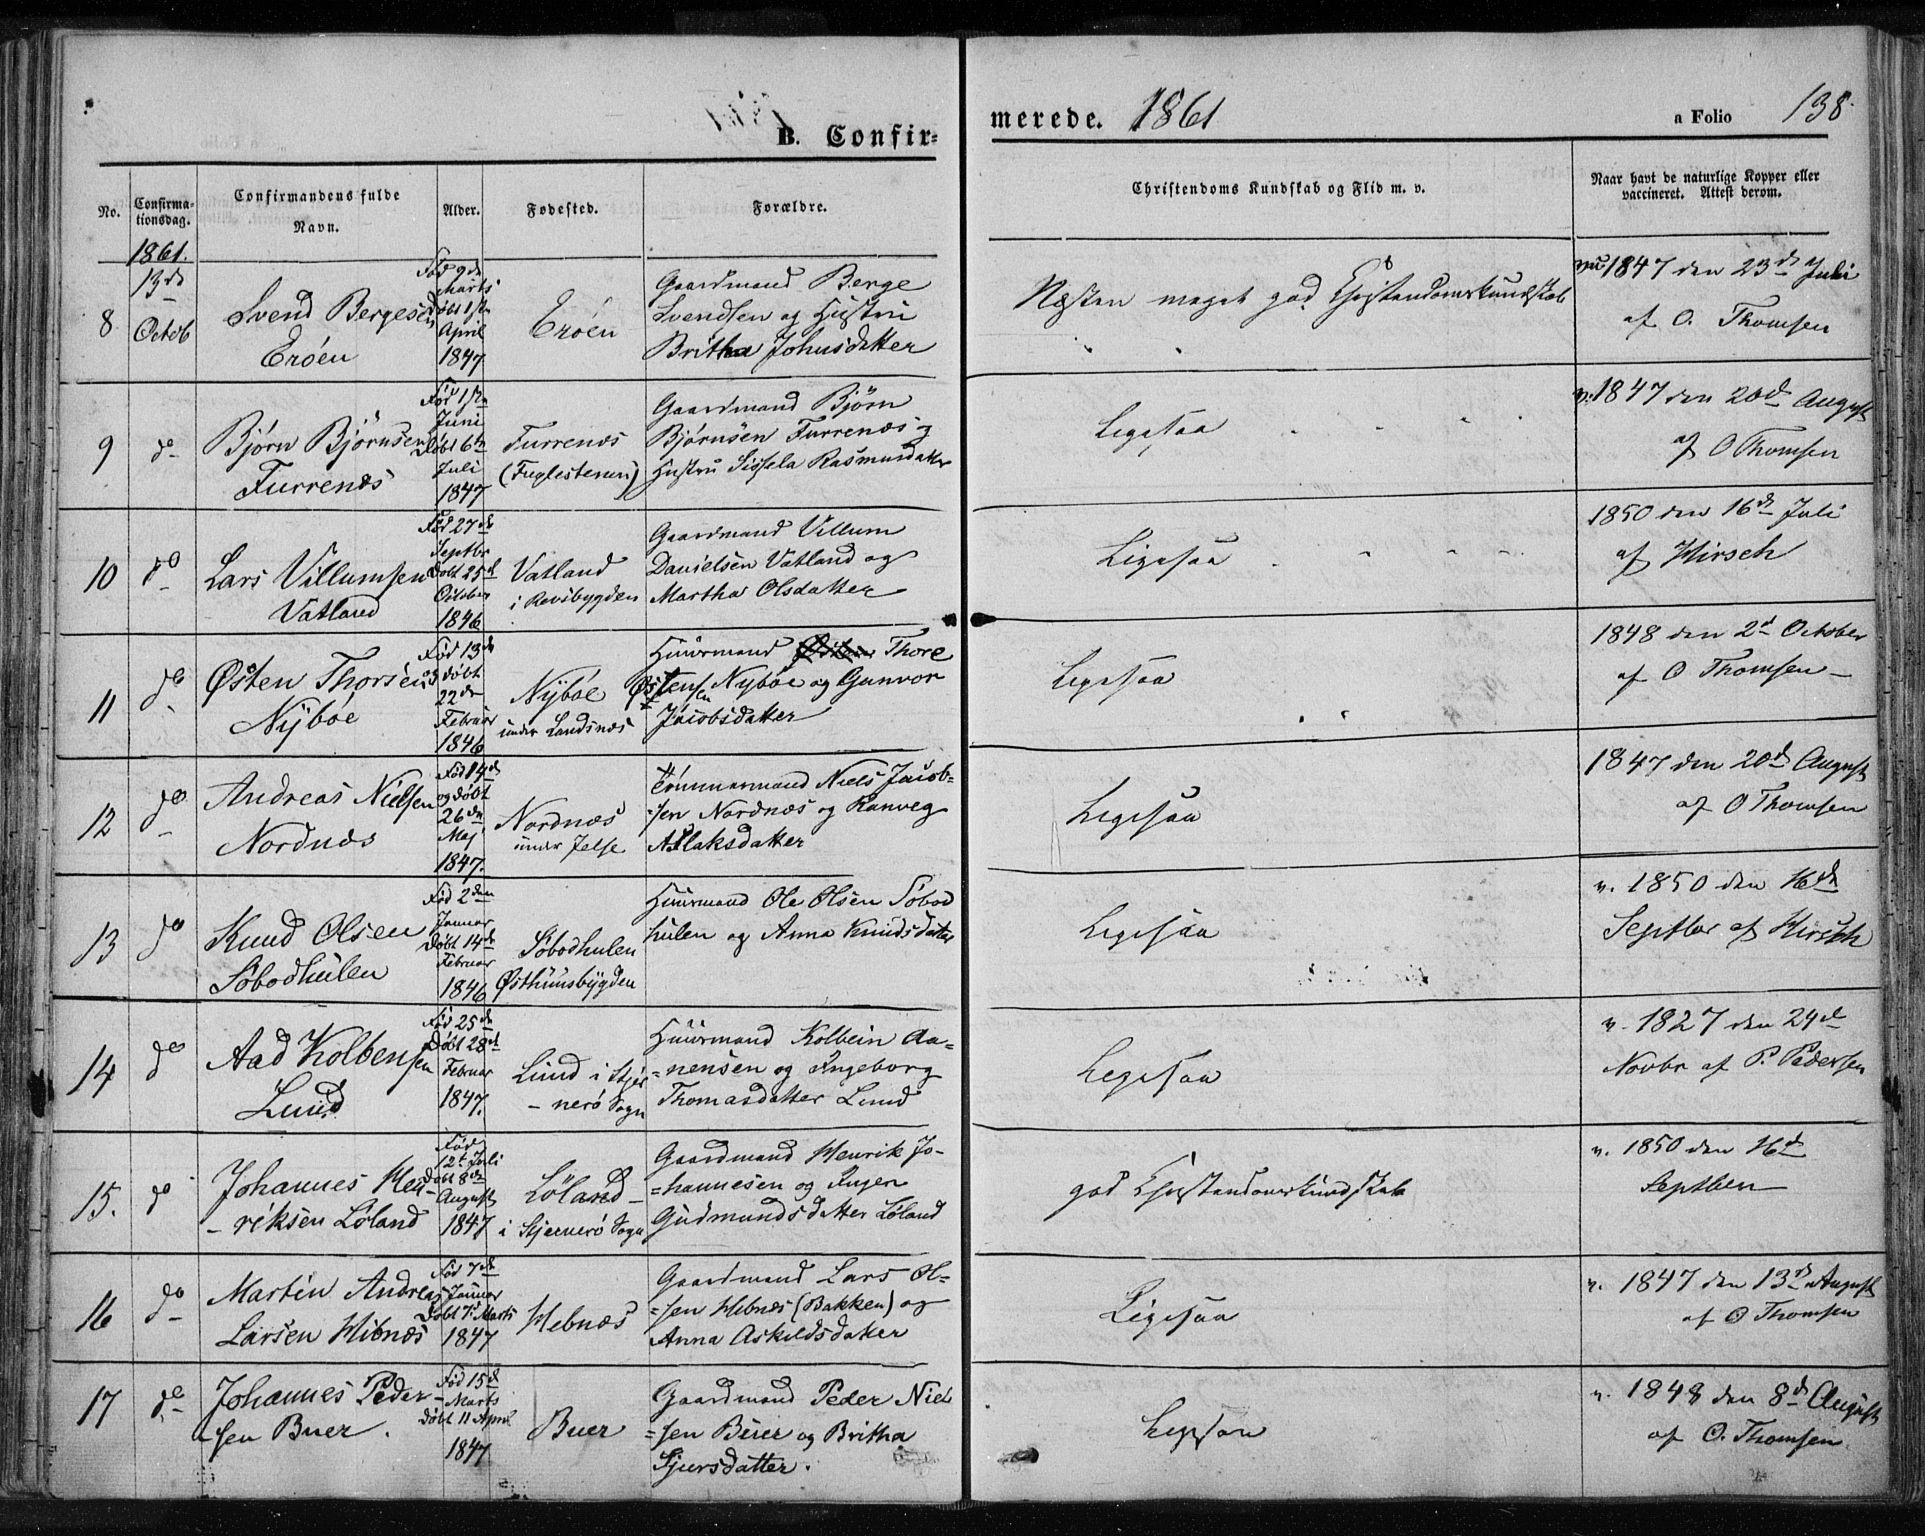 B. Confir=
merede. 1861
a Folio 138.
No.
Confirma-
tionsdag.
Confirmandens fulde
Navn.
Alder.
Fødested.
Forældre.
Christendoms Kundskab og Flid m. v.
Naar havt de naturlige Kopper eller
vaccineret. Attest derom.
1861.
8
13de
Octob
Svend Bergesen
Erøen
Fød 9de
Marts
døbt 1ste
April
1847
Erøen
Gaardmand Berge
Svendsen og Hustru
Britha Johnsdatter
Næsten meget god Christendomskundskab
1847 den 23de Juli
af O. Thomsen
9
do
Bjørn Bjørnsen
Furrenæs
Fød 1ste
Juni
Døbt 6te
Juli
1847
Furrenæs
(Fuglestenen)
Gaardmand Bjørn
Bjørnsen Furrenæs og
Hustru Sissela Rasmusdatter
Ligesaa
v. 1847 den 20de August
af O Thomsen
10
do
Lars Villumsen
Vatland
Fød 27de
Septbr
Døbt 25de
October
1846
Vatland
i Revsbygden
Gaardmand Villum
Danielsen Vatland og
Martha Olsdatter
Ligesaa
1850 den 16de Juli
af Hirsch
11
do
Østen Thorsen
Nybøe
Fød 13de
døbt
22de
Februar
1846
Nybøe
under Landsnæs
Huusmand Thore
Østensen Nybøe og Gunvor
Jacobsdatter
Ligesaa
1848 den 2de October
af O Thomsen
12
do
Andreas Nielsen
Nordnæs
Fød 14de
og døbt
26de
Maj
1847.
Nordnæs
under Jelse
Tømmermand Niels Jacob=
=sen Nordnæs og Ranveg
Aslaksdatter
Ligesaa
1847 den 20de August
af O Thomsen
13
do
Knud Olsen
Søbodhulen
Fød 2den
Januar
Døbt 14de
Februar
1846
Søbodhulen
Østhuusbygden
Huusmand Ole Olsen Søbod
hulen og Anna Knudsdatter
Ligesaa
v. 1850 den 16de
Septbr af Hirsch
14
do
Aad Kolbensen
Lund
Fød 25de
Døbt 28de
Februar
1847.
Lund i Stjer
- nerø Sogn
Huusmand Kolbein Aa=
=nensen og Ingeborg
Thomasdatter Lund
Ligesaa
v. 1827 den 24de
Novbr af P. Pedersen
15.
do
Johannes Hen
- riksen Løland
Fød
12te Juli
Døbt 8de
August
1847
Løland
i Stjernerø Sogn
Gaardmand Henrik Jo-
=hannesen og Inger
Gudmundsdatter Løland
god Christendomskundskab
v. 1850 den 16de
Septben
16
do
Martin Andreas
Larsen Hebnæs
Fød 7de
Januar
Døbt 7de Marts
1847
Hebnæs
Gaardmand Lars Ol=
=sen Hebnæs (Bakken) og
Anna Askildsdatter
Ligesaa
v. 1847 den 13de August
af O Thomsen
17
do
Johannes Peder-
sen Buer.
Fød 15de
Marts
Døbt 11 April
1847
Buer
Gaardmand Peder Niel
=sen Buer og Britha
Sjursdatter.
Ligesaa
v. 1848 den 8de August
af O. Thomsen